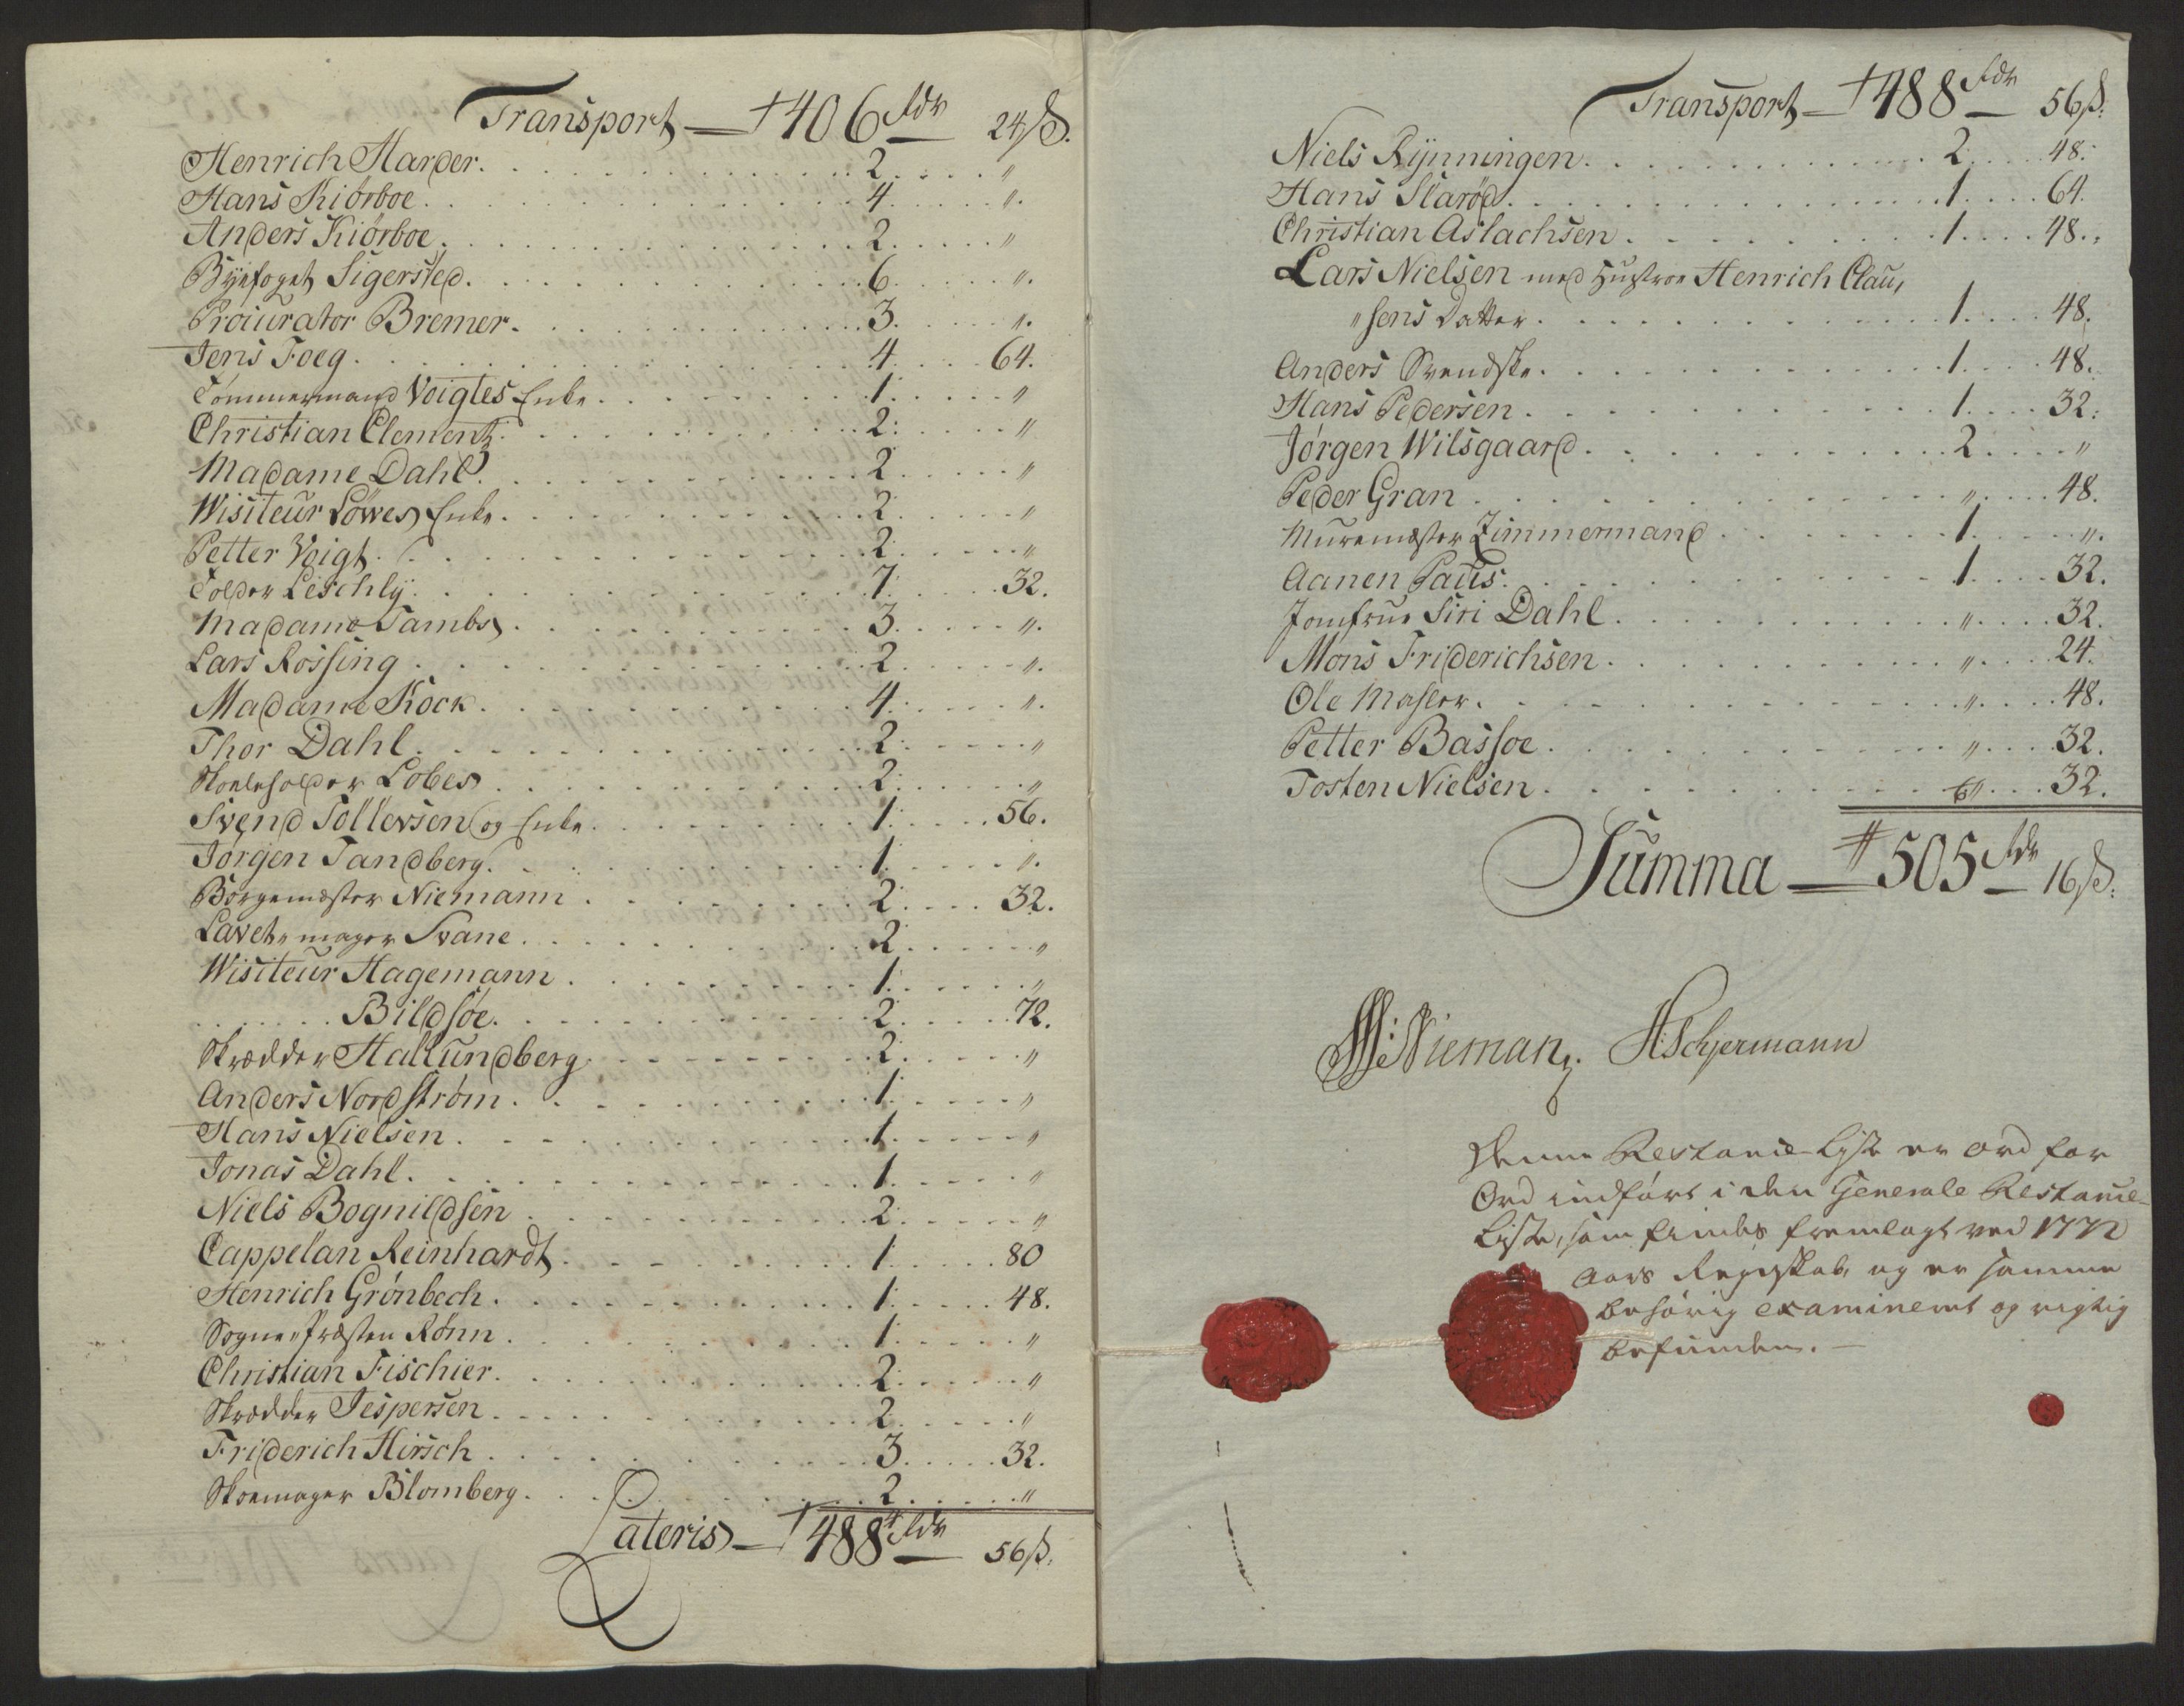 Transport — 406 rdr 24 ß.
Henrich Harder. 2 "
Hans Kiørboe. 4 ".
Anders Kiørboe. 2 "
Byefoget Sigersted. 6 ".
Procurator Bremer. 3. ".
Jens Foeg. 4. 64.
Tømmermand Voigtes Enke. 1. "
Christian Clementz. 2. "
Madame Dahl. 2 "
Wisiteur Løwes Enke. 2 "
Petter Voigt. 2. "
Tolder Leschly. 7. 32.
Madame Tambs. 3. ".
Lars Rossing. 2 ".
Madame Kock. 4. ".
Thor Dahl. 2. "
Skoeleholder Lobes. 2. "
Svend Tollevsen og Enke. 1. 56.
Jørgen Tandberg. 1. ".
Borgemester Niemann. 2. 32.
Lavet"mager Svane. 2 "
Wisiteur Hagemann. 1. "
Bildsøe. 2 72.
Skrædder Hallundberg 2 "
Anders Nordstrøm. 1. "
Hans Nielsen. 1. "
Jonas Dahl. 1. "
Niels Bognildsen 2. "
Cappelan Reinhardt. 1. 80
Henrich Grønbech. 1. 48.
Sogne"Præsten Rønn. 1. "
Christian Fischier. 2. "
Skrædder Jespersen. 2. "
Friderich Hirsch. 3. 32.
Skoemager Blomberg. 2. "
Lateris — 488 rdr 56 ß.
Transport — 488 rdr 56 ß.
Niels Rynningen. 2. 48.
Hans Starød. 1. 64.
Christian Aslachsen. 1. 48.
Lars Nielsen med Hustroe Henrich Clau,
"sens Datter. 1. 48.
Anders Svendske. 1. 48.
Hans Pedersen. 1. 32.
Jørgen Wilsgaard. 2. "
Peder Gran. " 48.
Muremester Zimmermand. 1. ".
Aanen Paus. 1. 32.
Jomfrue Siri Dahl. " 32.
Mons Friderichsen. " 24.
Ole Mahler. " 48.
Petter Bassoe. " 32.
Tosten Nielsen. " 32.
Summa — 505 rdr 16 ß.
Nieman. Schjermann
Denne Restance-Liste er ord for
Ord indført i den Generale Restance-
Liste, som findes fremlagt ved 1772
Aars Regnskab, og er samme
behørig examineret og rigtig
befunden. —